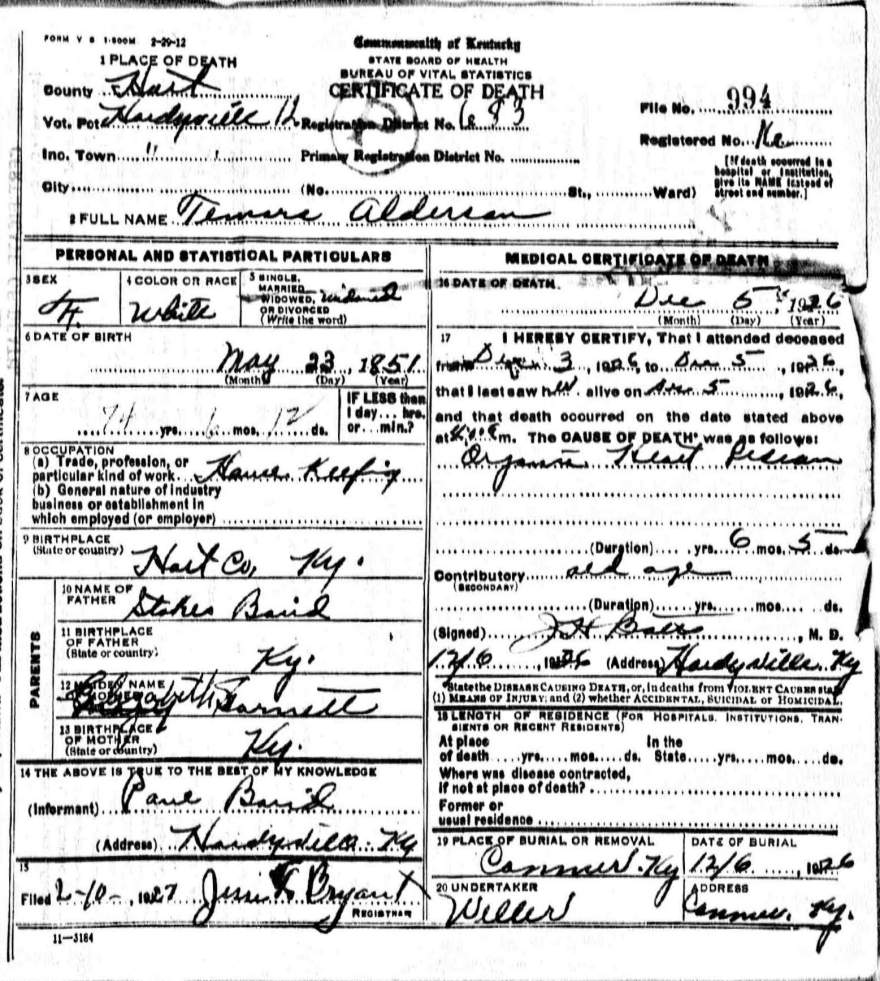 FORM V S 1-500M 2-29-12
Commonwealth of Kentucky
STATE BOARD OF HEALTH
BUREAU OF VITAL STATISTICS
CERTIFICATE OF DEATH
1 PLACE OF DEATH
County Hart
Vot. Pct Hardyville 12 Registration District No. 683
File No. 994
Inc. Town " Primary Registration District No.
Registered No.
City (No. St., Ward)
[If death occurred in a hospital or institution, give its NAME instead of street and number.]
2 FULL NAME Temara Alderson
PERSONAL AND STATISTICAL PARTICULARS
3 SEX F.
4 COLOR OR RACE White
5 SINGLE, MARRIED, WIDOWED, OR DIVORCED (Write the word) Widowed
6 DATE OF BIRTH
May 23, 1851
(Month) (Day) (Year)
7 AGE
74 yrs. 6 mos. 12 ds.
IF LESS than 1 day... hrs. or... min.?
8 OCCUPATION
(a) Trade, profession, or particular kind of work House Keeping
(b) General nature of industry business or establishment in which employed (or employer)
9 BIRTHPLACE
(State or country) Hart Co, Ky.
PARENTS
10 NAME OF FATHER Stokes Baird
11 BIRTHPLACE OF FATHER (State or country) Ky.
12 MAIDEN NAME OF MOTHER Elizabeth Garnett
13 BIRTHPLACE OF MOTHER (State or country) Ky.
14 THE ABOVE IS TRUE TO THE BEST OF MY KNOWLEDGE
(Informant) Paul Baird
(Address) Hardyville Ky
15
Filed 2-10-, 1927 Bryant
REGISTRAR
11-3184
MEDICAL CERTIFICATE OF DEATH
16 DATE OF DEATH
Dec 5, 1926
(Month) (Day) (Year)
17 I HEREBY CERTIFY, That I attended deceased
from Dec 3, 1926, to Dec 5, 1926
that I last saw her alive on Dec 5, 1926,
and that death occurred on the date stated above
at m. The CAUSE OF DEATH* was as follows:
Organic Heart Disease
(Duration) yrs. 6 mos. 5 ds.
Contributory (SECONDARY) old age
(Duration) yrs. mos. ds.
(Signed) J H , M. D.
12/6, 1926 (Address) Hardyville Ky
*State the DISEASE CAUSING DEATH, or, in deaths from VIOLENT CAUSES state
(1) MEANS OF INJURY; and (2) whether ACCIDENTAL, SUICIDAL or HOMICIDAL.
18 LENGTH OF RESIDENCE (FOR HOSPITALS, INSTITUTIONS, TRANSIENTS OR RECENT RESIDENTS)
At place In the
of death yrs. mos. ds. State yrs. mos. ds.
Where was disease contracted,
If not at place of death?
Former or
usual residence
19 PLACE OF BURIAL OR REMOVAL
Canmer Ky
DATE OF BURIAL
12/6, 1926
20 UNDERTAKER
Weller
ADDRESS
Canmer, Ky.